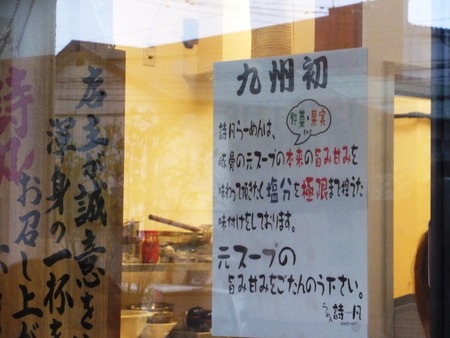 九州初
野菜・果実
詩月らーめんは、
豚骨の元スープの本来の旨み甘みを
味わって頂きたく塩分を極限まで控えた
味付けをしております。
元スープの
旨み甘みをごたんのう下さい。
らーめん 詩月
店主が誠意を
渾身の一杯を
お召し上が
詩月